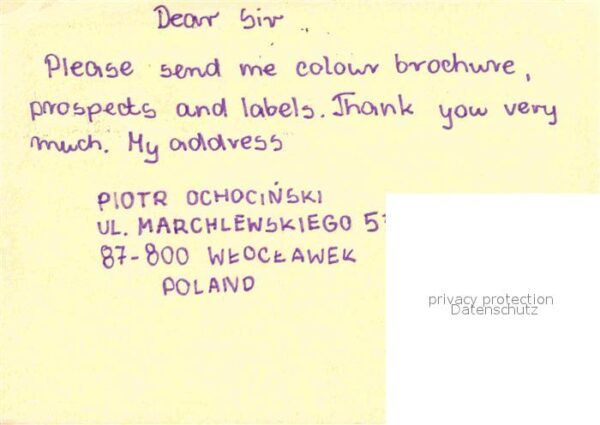 Dear Sir
Please send me colour brochure,
prospects and labels. Thank you very
much. My address
PIOTR OCHOCIŃSKI
UL. MARCHLEWSKIEGO
87-800 WŁOCŁAWEK
POLAND
privacy protection
Datenschutz